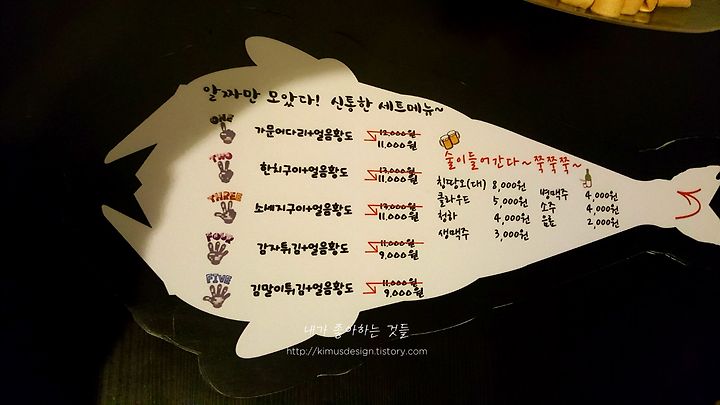 알짜만 모았다! 신통한 세트메뉴~
ONE
가문어다리+얼음황도
12,000원
11,000원
TWO
한치구이+얼음황도
13,000원
11,000원
THREE
소세지구이+얼음황도
13,000원
11,000원
FOUR
감자튀김+얼음황도
11,000원
9,000원
FIVE
김말이튀김+얼음황도
11,000원
9,000원
술이들어간다~쭉쭉쭉~
칭따오(대) 8,000원
클라우드 5,000원
청하 4,000원
생맥주 3,000원
병맥주 4,000원
소주 4,000원
음료 2,000원
내가 좋아하는 것들
http://kimusdesign.tistory.com